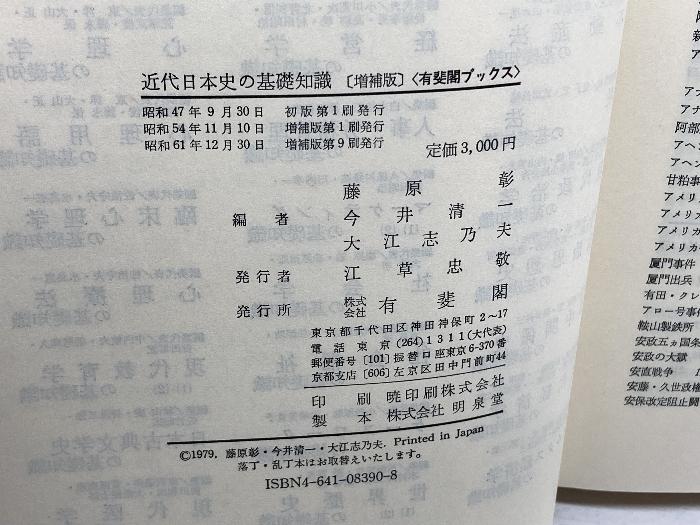 近代日本史の基礎知識 〔増補版〕〈有斐閣ブックス〉
昭和47年9月30日 初版第1刷発行
昭和54年11月10日 増補版第1刷発行
昭和61年12月30日 増補版第9刷発行
定価3,000円
藤原彰
編者 今井清一
大江志乃夫
発行者 江草忠敬
発行所 株式会社 有斐閣
東京都千代田区神田神保町2~17
電話 東京 (264) 1311 (大代表)
郵便番号〔101〕振替口座東京6-370番
京都支店〔606〕左京区田中門前町44
印刷 暁印刷株式会社
製本 株式会社明泉堂
©1979, 藤原彰・今井清一・大江志乃夫. Printed in Japan
落丁・乱丁本はお取替えいたします。
ISBN4-641-08390-8
阿部
アヘン
アヘン
甘粕事
アメリ
アメリカ
アメリカ
アメリカ
厦門事件
厦門出兵
有田・クレ
アロー号事
鞍山製鉄所
安政五ヵ国条
安政の大獄
安直戦争
安藤・久世政権
安保改定阻止闘